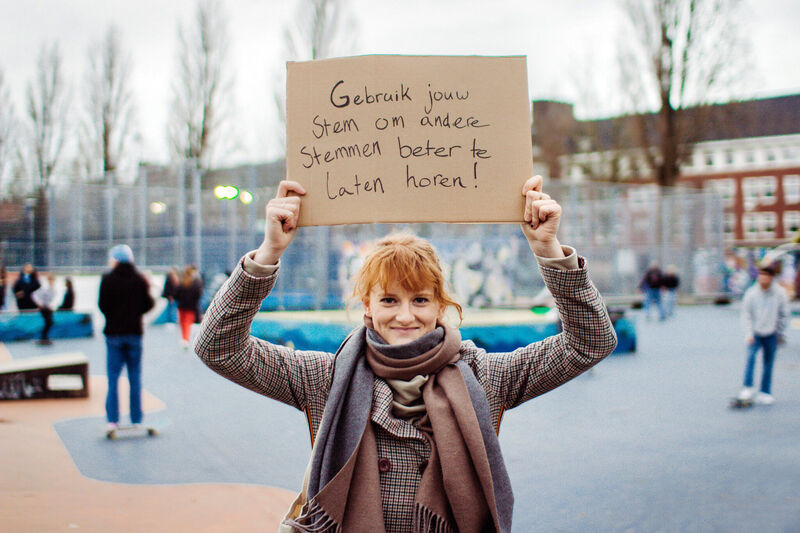 Gebruik jouw
Stem om andere
Stemmen beter te
Laten horen!